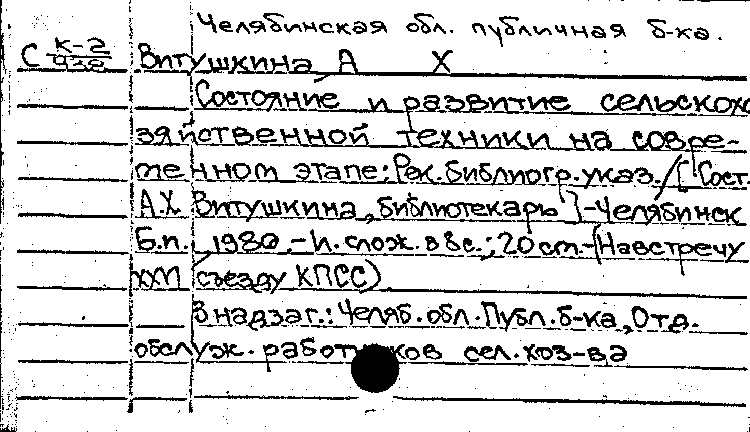 Челябинская обл. публичная б-ка.
С К-2/938 Витушкина А Х
Состояние и развитие сельскохо
зяйственной техники на совре-
менном этапе: Рек. библиогр. указ. / [Сост.
А.Х. Витушкина, библиотекарь] - Челябинск
Б.п., 1980. - И. слож. в 8с.; 20 см. - (Навстречу
XXVI съезду КПСС)
В надзаг.: Челяб. обл. Публ. б-ка, Отд.
обслуж. работников сел. хоз-ва